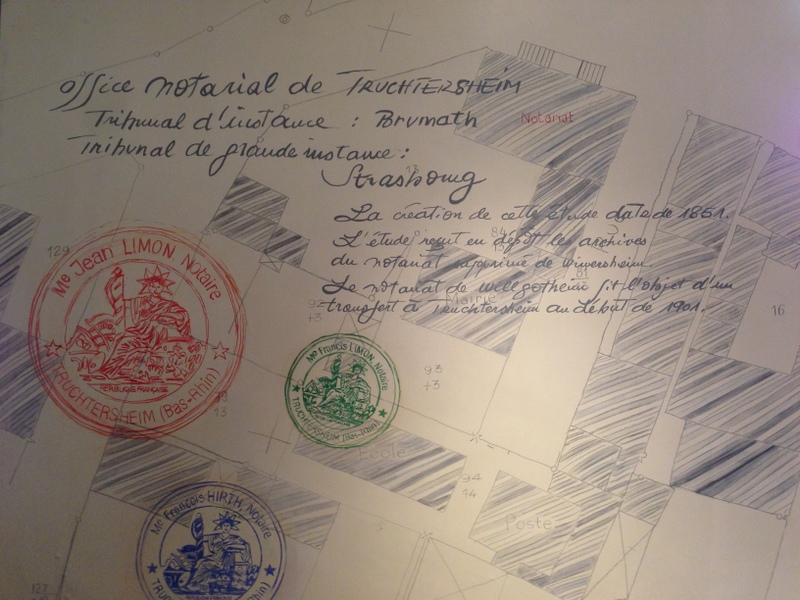 office notarial de TRUCHTERSHEIM
Tribunal d'instance : Brumath
Tribunal de grande instance :
Strasbourg
Notariat
La création de cette étude date de 1851.
L'étude reçut en dépôt les archives
du notariat supprimé de Wiwersheim.
Le notariat de Willgottheim fit l'objet d'un
transfert à Truchtersheim au début de 1901.
129
84
81
Mairie
16
92
+3
Me Jean LIMON Notaire
REPUBLIQUE FRANÇAISE
TRUCHTERSHEIM (Bas-Rhin)
13
Me Francis LIMON, Notaire
TRUCHTERSHEIM (Bas-Rhin)
93
+3
Ecole
94
14
Poste
Me François HIRTH, Notaire
TRUCHTERSHEIM (Bas-Rhin)
127